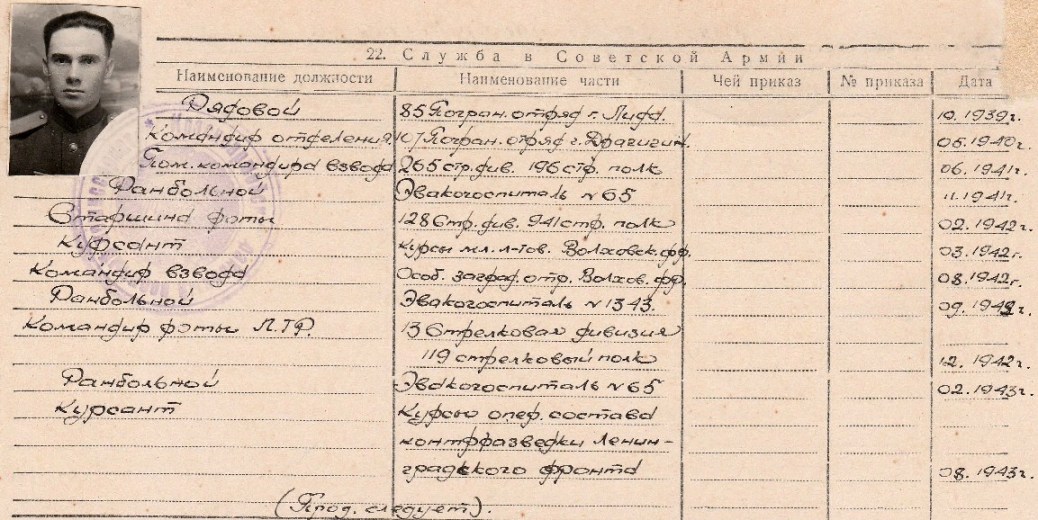 22. Служба в Советской Армии
Наименование должности Наименование части Чей приказ № приказа Дата
Рядовой 85 Погран. отряд г. Лида. 10. 1939г.
Командир отделения. 107 Погран. отряд г. Драгигин. 05. 1940г.
Пом. командира взвода 265 стр. див. 196 стр. полк 06. 1941г.
Ранбольной Эвакогоспиталь №65 11. 1941г.
Старшина роты 128 Стр. див. 941 стр. полк 02. 1942г.
Курсант Курсы мл. л-тов. Волховск. фр. 03. 1942г.
Командир взвода Особ. заград. отр. Волхов. фр. 08. 1942г.
Ранбольной Эвакогоспиталь №1343. 09. 1942г.
Командир роты П.ТР. 13 Стрелковая дивизия
119 стрелковый полк 12. 1942г.
Ранбольной Эвакогоспиталь №65 02. 1943г.
Курсант Курсы опер. состава
контрразведки Ленин-
градского фронта 08. 1943г.
(Прод. следует).